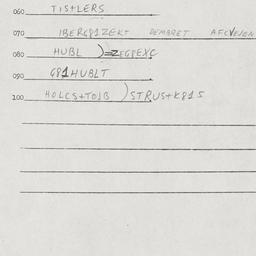 060 TIS+LERS
070 IBERG81ZEKT DEMBRET AFCVEVEN
080 HUBL )=ZEG8EXC
090 G81HUBLT
100 HOLCS+TOIB )STRUS+K81S